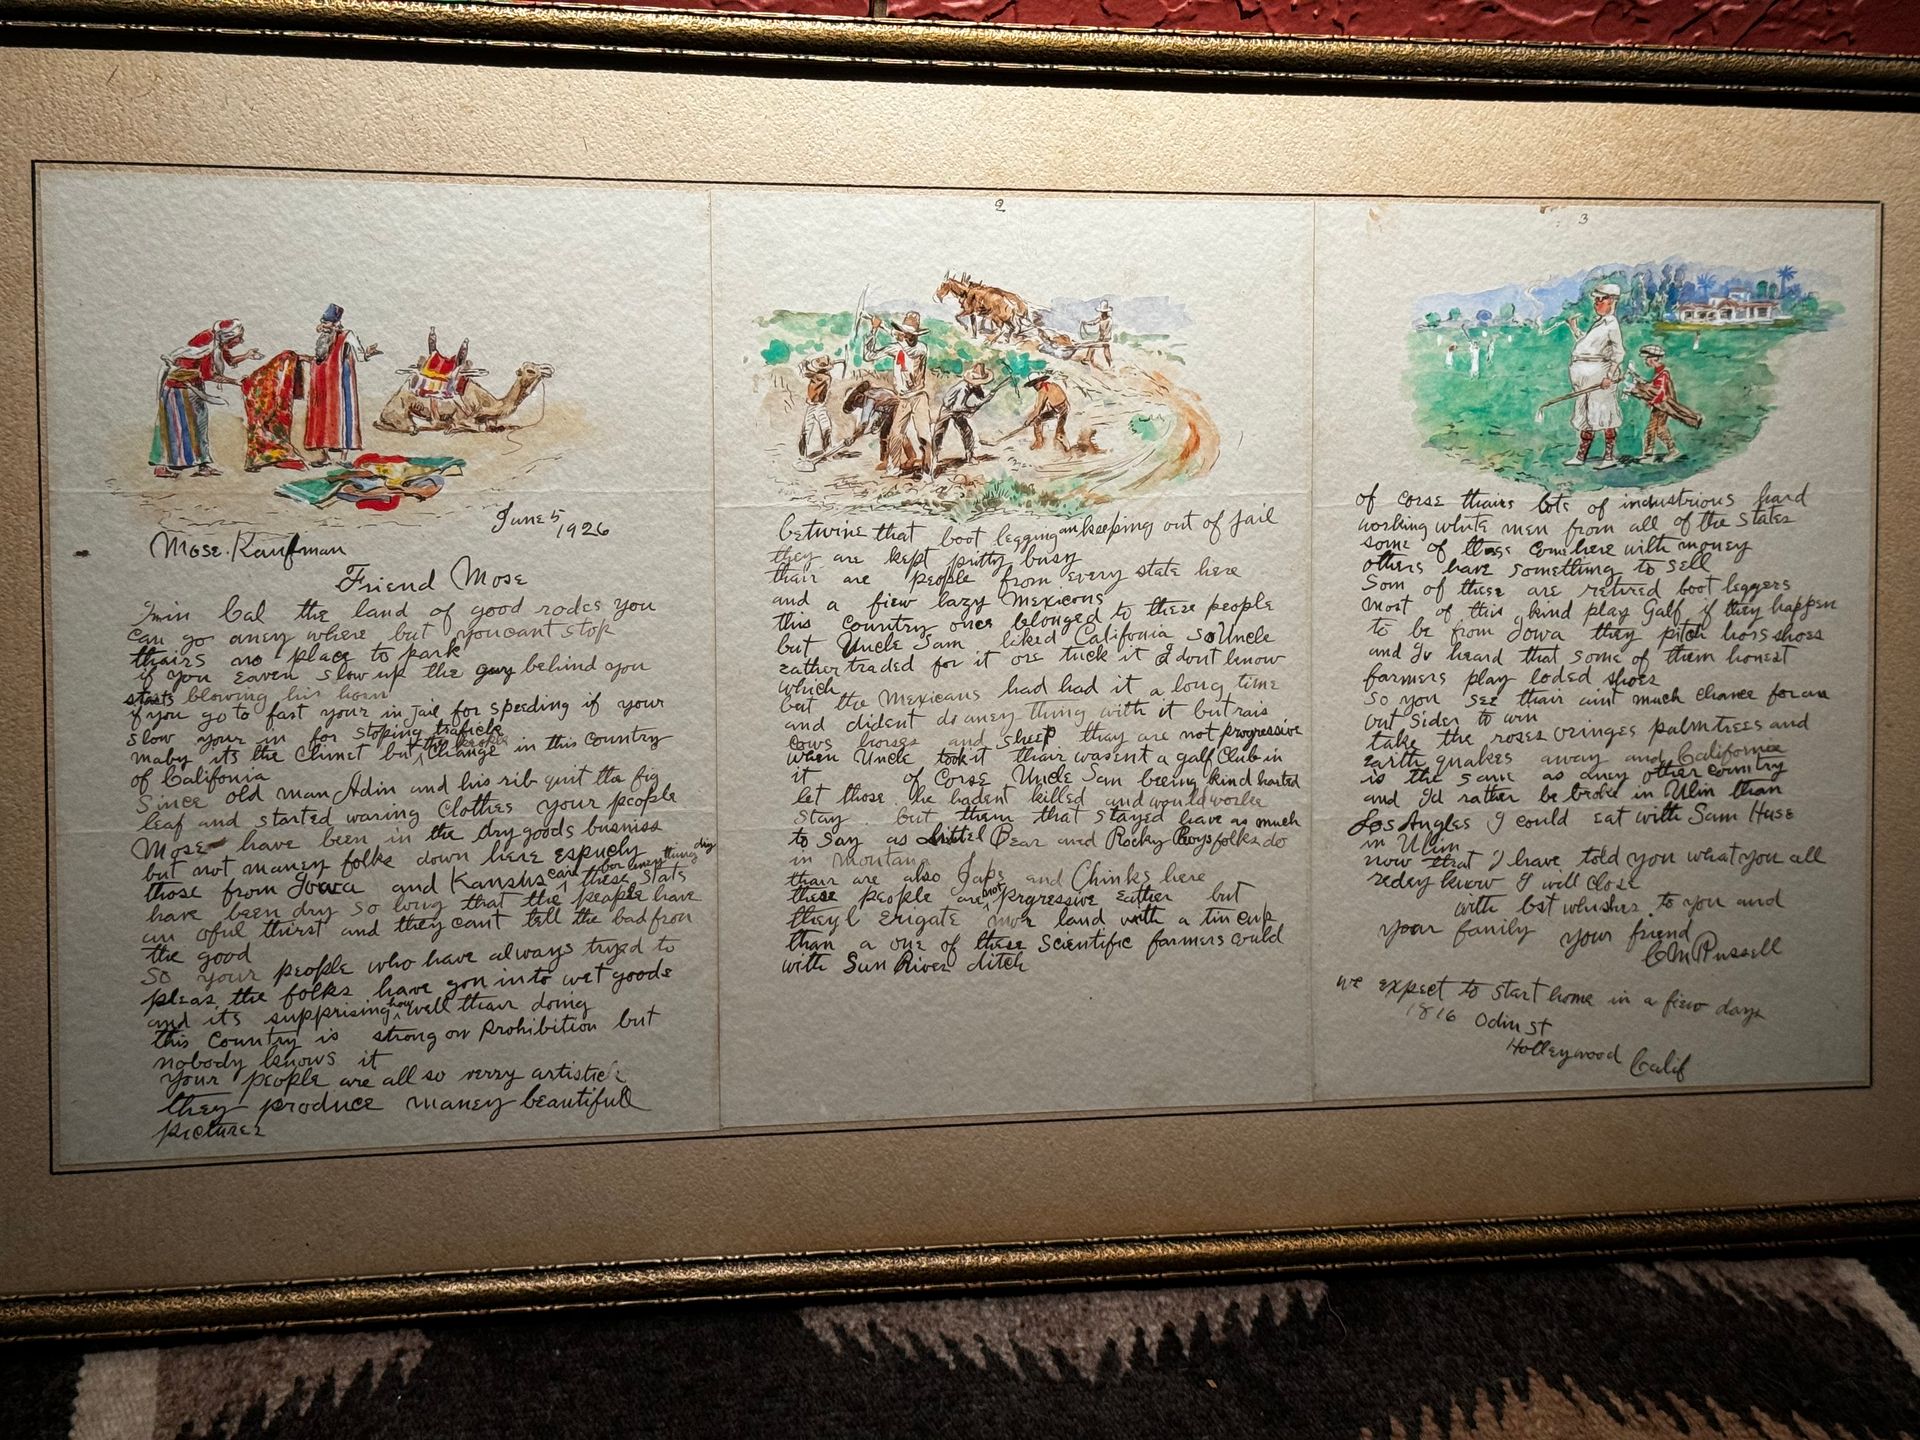 June 5
1926
Mose Kaufman
Friend Mose
Imin Cal the land of good rodes you
can go aney where but you cant stop
thairs no place to park
if you eaven slow up the guy behind you
starts blowing his horn
if you go to fast your in jail for speeding if your
slow your in for stoping traficke
maby its the climet but the people change in this country
of Califonia
Since old man Adin and his rib quit tha fig
leaf and started waring clothes your people
Mose have been in the dry goods busniss
but not maney folks down here espucly
those from Iowa and Kansus care for anything dry these stats
have been dry so long that the people have
an oful thirst and they cant tell the bad from
the good
So your people who have always tryed to
pleas the folks have gon into wet goods
and its supprising how well thair doing
this country is strong on prohibition but
nobody knows it
your people are all so verry artistick
they produce maney beautifull
pictures
2
betwine that boot legging an keeping out of jail
they are kept pritty busy
thair are people from every state here
and a fiew lazy Mexicons
this country once belonged to these people
but Uncle Sam liked Califonia so Uncle
eather traded for it ore tuck it I dont know
which
but the Mexicans had had it a long time
and dident do aney thing with it but rais
cows horses and sheep thay are not progressive
when Uncle took it thair wasent a golf Club in
it of Corse Uncle Sam beeing kind harted
let those he hadent killed and would worke
stay but them that stayed have as much
to say as Littel Bear and Rocky Boys folks do
in Montana
thair are also Japs and Chinks here
these people are not pergressive eather but
theyl erigate more land with a tin cup
than a one of these scientific farmers could
with Sun River ditch
3
of corse thairs lots of industrious hard
working white men from all of the states
some of these come here with money
others have something to sell
Som of these are retired boot leggers
most of this kind play Golf if they happen
to be from Iowa they pitch hors shoes
and Iv heard that some of them honest
farmers play loded shoes
so you see thair aint much chance for an
out sider to win
take the roses oringes palm trees and
earth quakes away and California
is the same as aney other country
and I'd rather be broke in Ulm than
Los Angles I could eat with Sam Huse
in Ulm
now that I have told you what you all
redey know I will close
with bst whishes to you and
your family your friend
CM Russell
we expect to start home in a fiew days
1816 Odin St
Holleywood Calif